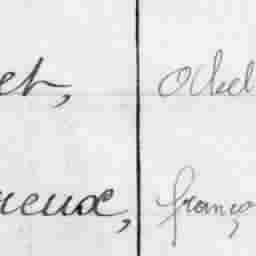 et, Odel
ueux, franço